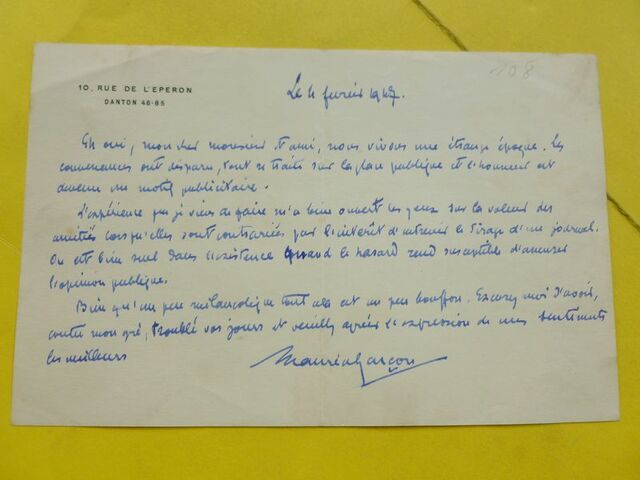 108
10, RUE DE L'EPERON
DANTON 46-85
Le 4 février 1947.
Eh oui, mon cher monsieur et ami, nous vivons une étrange époque. Les
convenances ont disparu, tout se traite sur la place publique et l'honneur est
devenu un motif publicitaire.
L'expérience que je viens de faire m'a bien ouvert les yeux sur la valeur des
amitiés lorsqu'elles sont contrariées par l'intérêt d'un tirage d'un journal.
On est bien seul dans l'existence quand le hasard rend susceptible d'amuser
l'opinion publique.
Bien qu'un peu mélancolique tout cela est un peu bouffon. Excusez moi d'avoir,
contre mon gré, troublé vos jours et veuillez agréer l'expression de mes sentiments
les meilleurs
Maurice Garçon